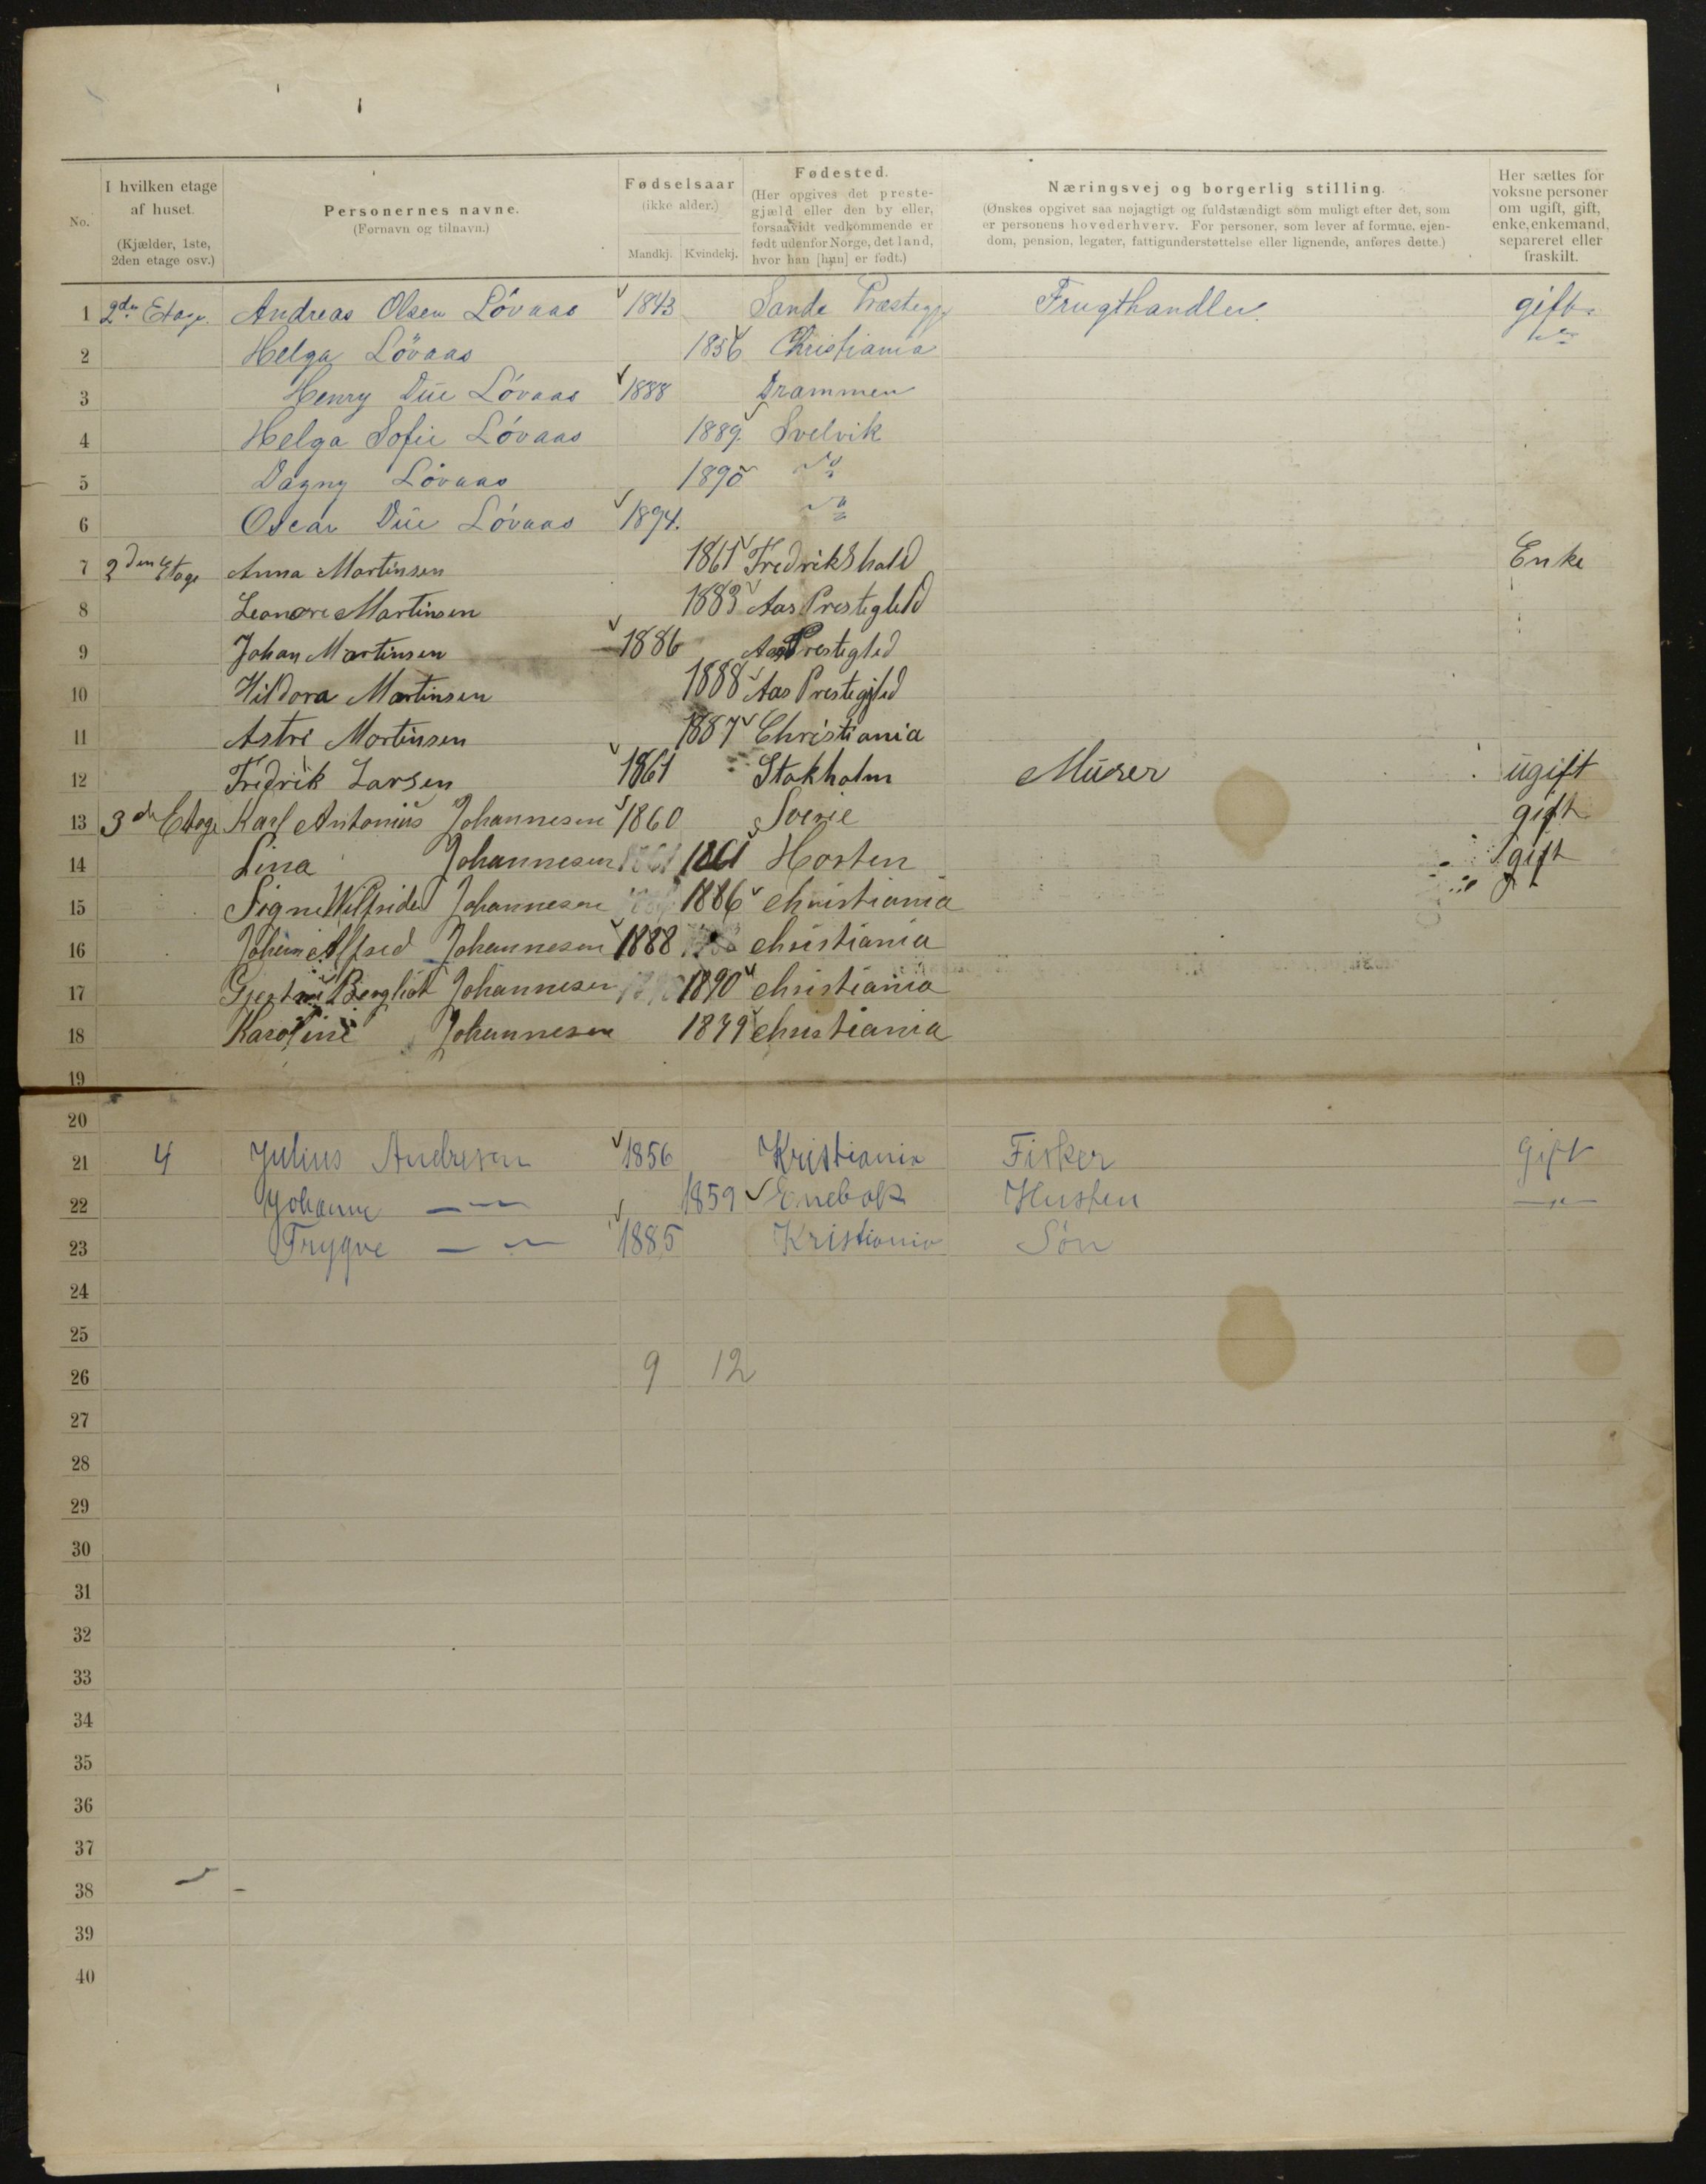 No.
I hvilken etage af huset.
(Kjælder, 1ste, 2den etage osv.)
Personernes navne.
(Fornavn og tilnavn.)
Fødselsaar
(ikke alder.)
Mandkj. Kvindekj.
Fødested.
(Her opgives det prestegjæld eller den by eller, forsaavidt vedkommende er født udenfor Norge, det land, hvor han [hun] er født.)
Næringsvej og borgerlig stilling.
(Ønskes opgivet saa nøjagtigt og fuldstændigt som muligt efter det, som er personens hovederhverv. For personer, som lever af formue, ejendom, pension, legater, fattigunderstøttelse eller lignende, anføres dette.)
Her sættes for voksne personer om ugift, gift, enke, enkemand, separeret eller fraskilt.
1 2den Etage. Andreas Olsen Lövaas 1843 Sande Præstegj Frugthandler. gift.
2 Helga Lövaas 1856 Christiania
3 Henry Düe Lövaas 1888 Drammen
4 Helga Sofie Lövaas 1889. Svelvik
5 Dagny Lövaas 1890
6 Oscar Düe Lövaas 1894.
7 2den Etage Anna Martinsen 1861 Fredrikshald Enke
8 Leonore Martinsen 1883 Aas Prestegleld
9 Johan Martinsen 1886 Aas Prestegled
10 Hildora Martinsen 1888 Aas Prestegjled
11 Astri Martinsen 1887 Christiania
12 Fredrik Larsen 1861 Stokholm Murer ugift
13 3de Etage Karl Antonius Johannesen 1860 Sverie gift
14 Lina Johannesen 1861 Horten gift
15 Signe Wilfride Johannesen 1886 christiania
16 Johan Alfred Johannesen 1888 christiania
17 Bergliot Johannesen 1890 christiania
18 Karoline Johannesen christiania
19
20
21 4 Julius Andresen 1856 Kristiania Fisker Gift
22 Johanne — — 1859 Enebak Husten — " —
23 Trygve — — 1885 Kristiania Søn
24
25
26 9 12
27
28
29
30
31
32
33
34
35
36
37
38
39
40